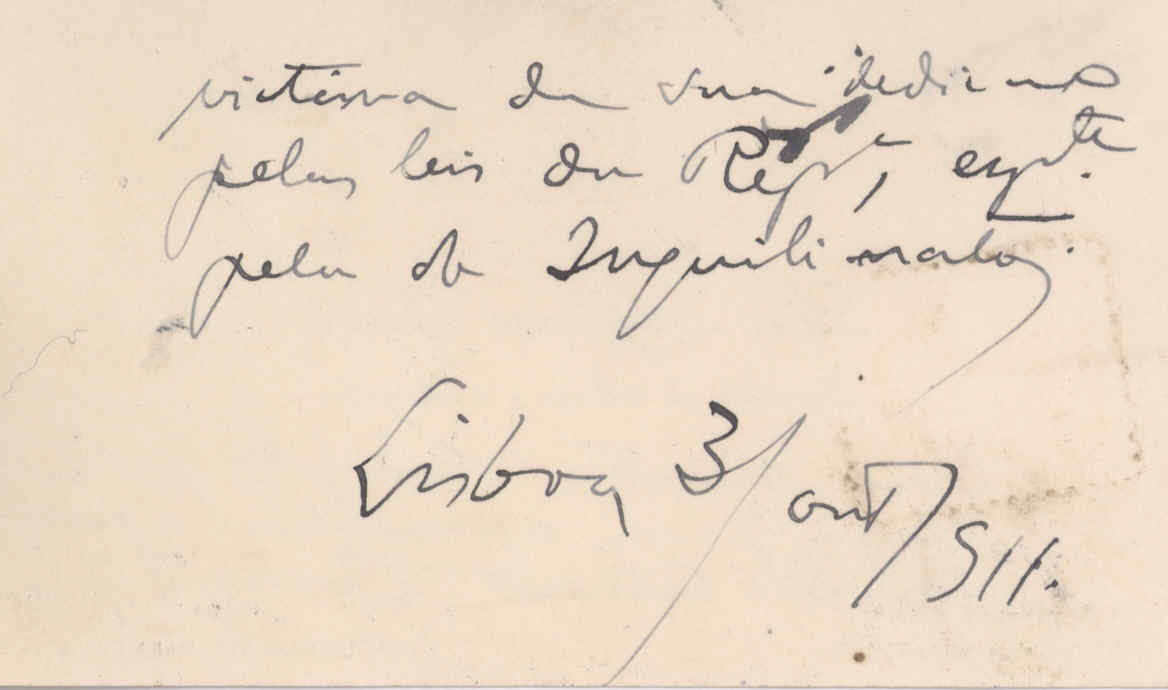 victima da sua dedicação
pelas leis da Repª, espte.
pela do Inquilinato.
Lisboa 3/out/911.